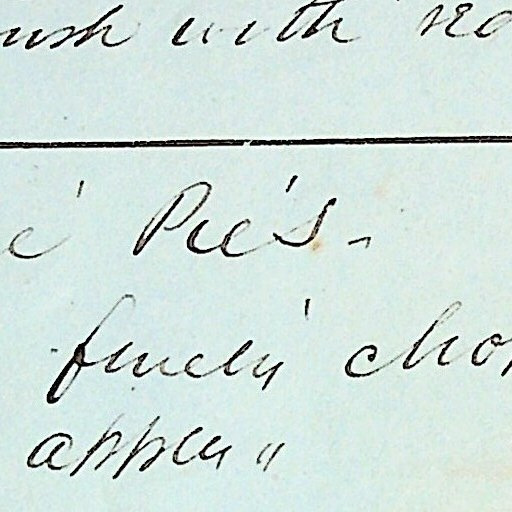 ush with
e' Pie's -
finely chop
apples "